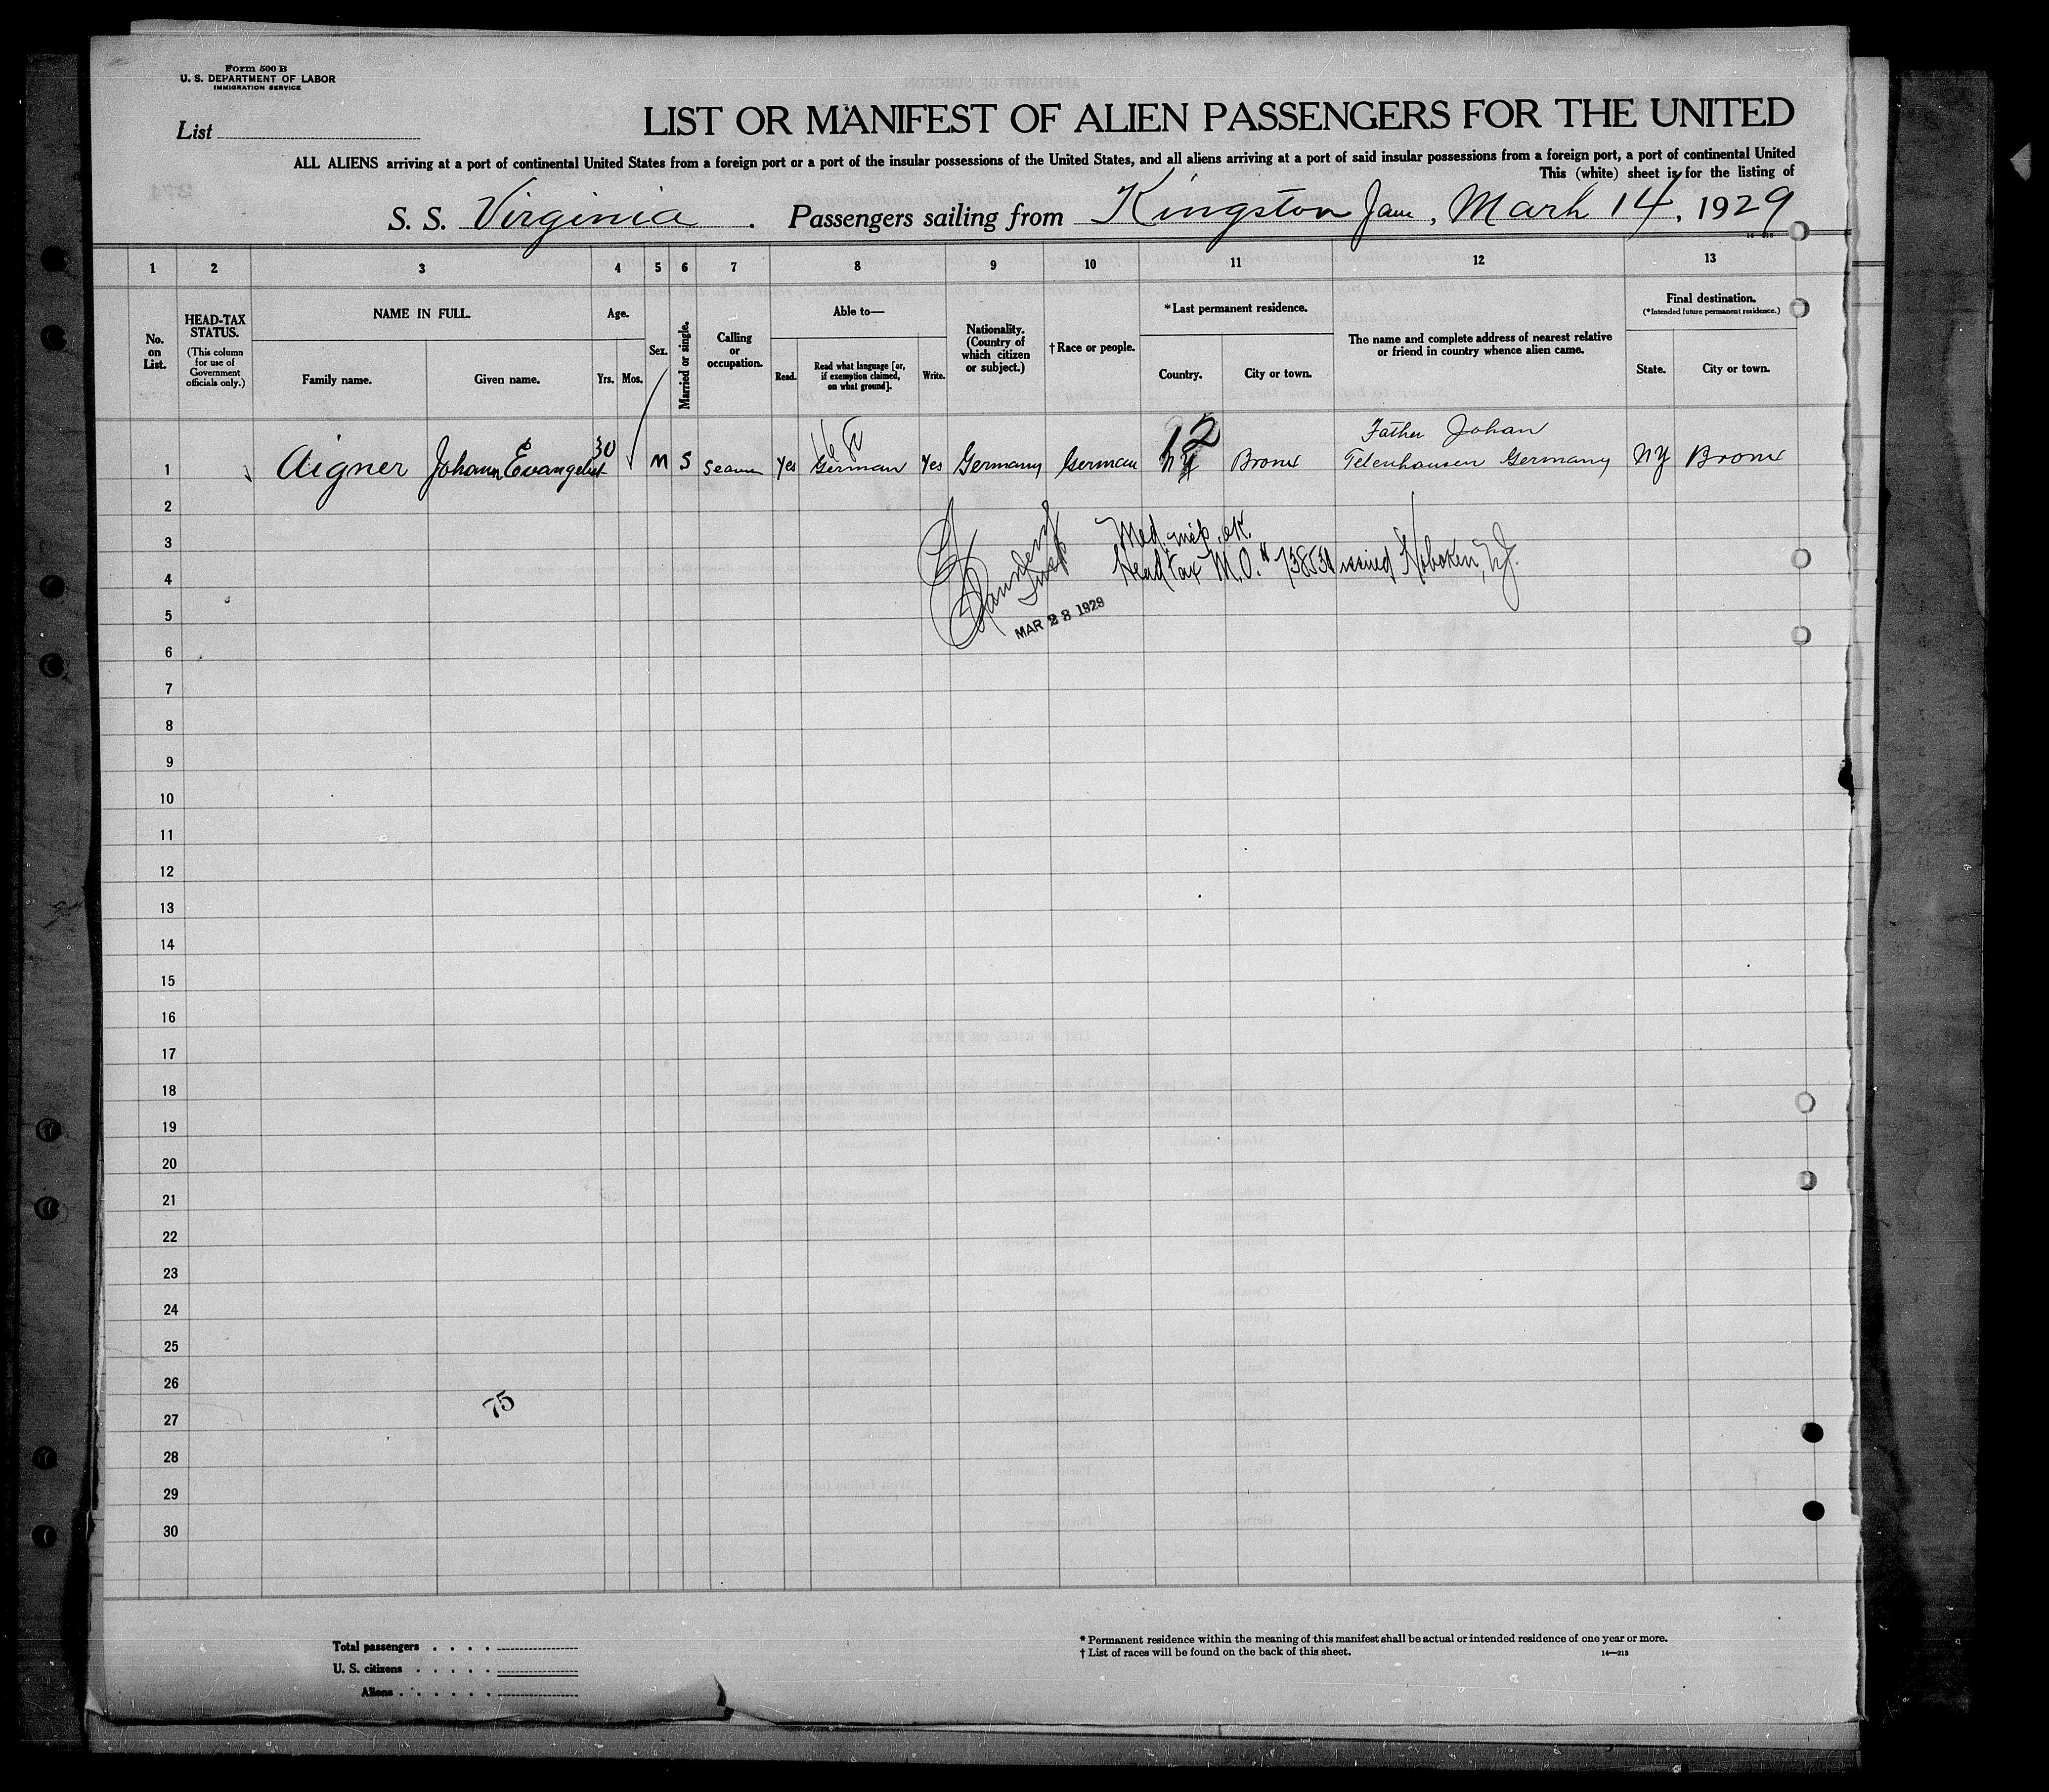 Form 500 B
U. S. DEPARTMENT OF LABOR
IMMIGRATION SERVICE
List
LIST OR MANIFEST OF ALIEN PASSENGERS FOR THE UNITED
ALL ALIENS arriving at a port of continental United States from a foreign port or a port of the insular possessions of the United States, and all aliens arriving at a port of said insular possessions from a foreign port, a port of continental United
This (white) sheet is for the listing of
S. S. Virginia. Passengers sailing from Kingston Jam, Marh 14, 1929
1 2 3 4 5 6 7 8 9 10 11 12 13
No. on List.
HEAD-TAX STATUS.
(This column for use of Government officials only.)
NAME IN FULL.
Family name. Given name.
Age.
Yrs. Mos.
Sex.
Married or single.
Calling or occupation.
Able to—
Read. Read what language [or, if exemption claimed, on what ground]. Write.
Nationality. (Country of which citizen or subject.)
† Race or people.
* Last permanent residence.
Country. City or town.
The name and complete address of nearest relative or friend in country whence alien came.
Final destination.
(* Intended future permanent residence.)
State. City or town.
12 Father Johan
1 Aigner Johann Evangelist 30 M S Seaman Yes German Yes Germany German NY Bronx Telenhausen Germany NY Bronx
2
3 Med. insp. ok.
4 Head tax M.O. # 73853 issued Hoboken, NJ.
5 MAR 28 1929
6
7
8
9
10
11
12
13
14
15
16
17
18
19
20
21
22
23
24
25
26
75
27
28
29
30
Total passengers . . . .
U. S. citizens . . . . .
Aliens . . . . . .
* Permanent residence within the meaning of this manifest shall be actual or intended residence of one year or more.
† List of races will be found on the back of this sheet.
14—213